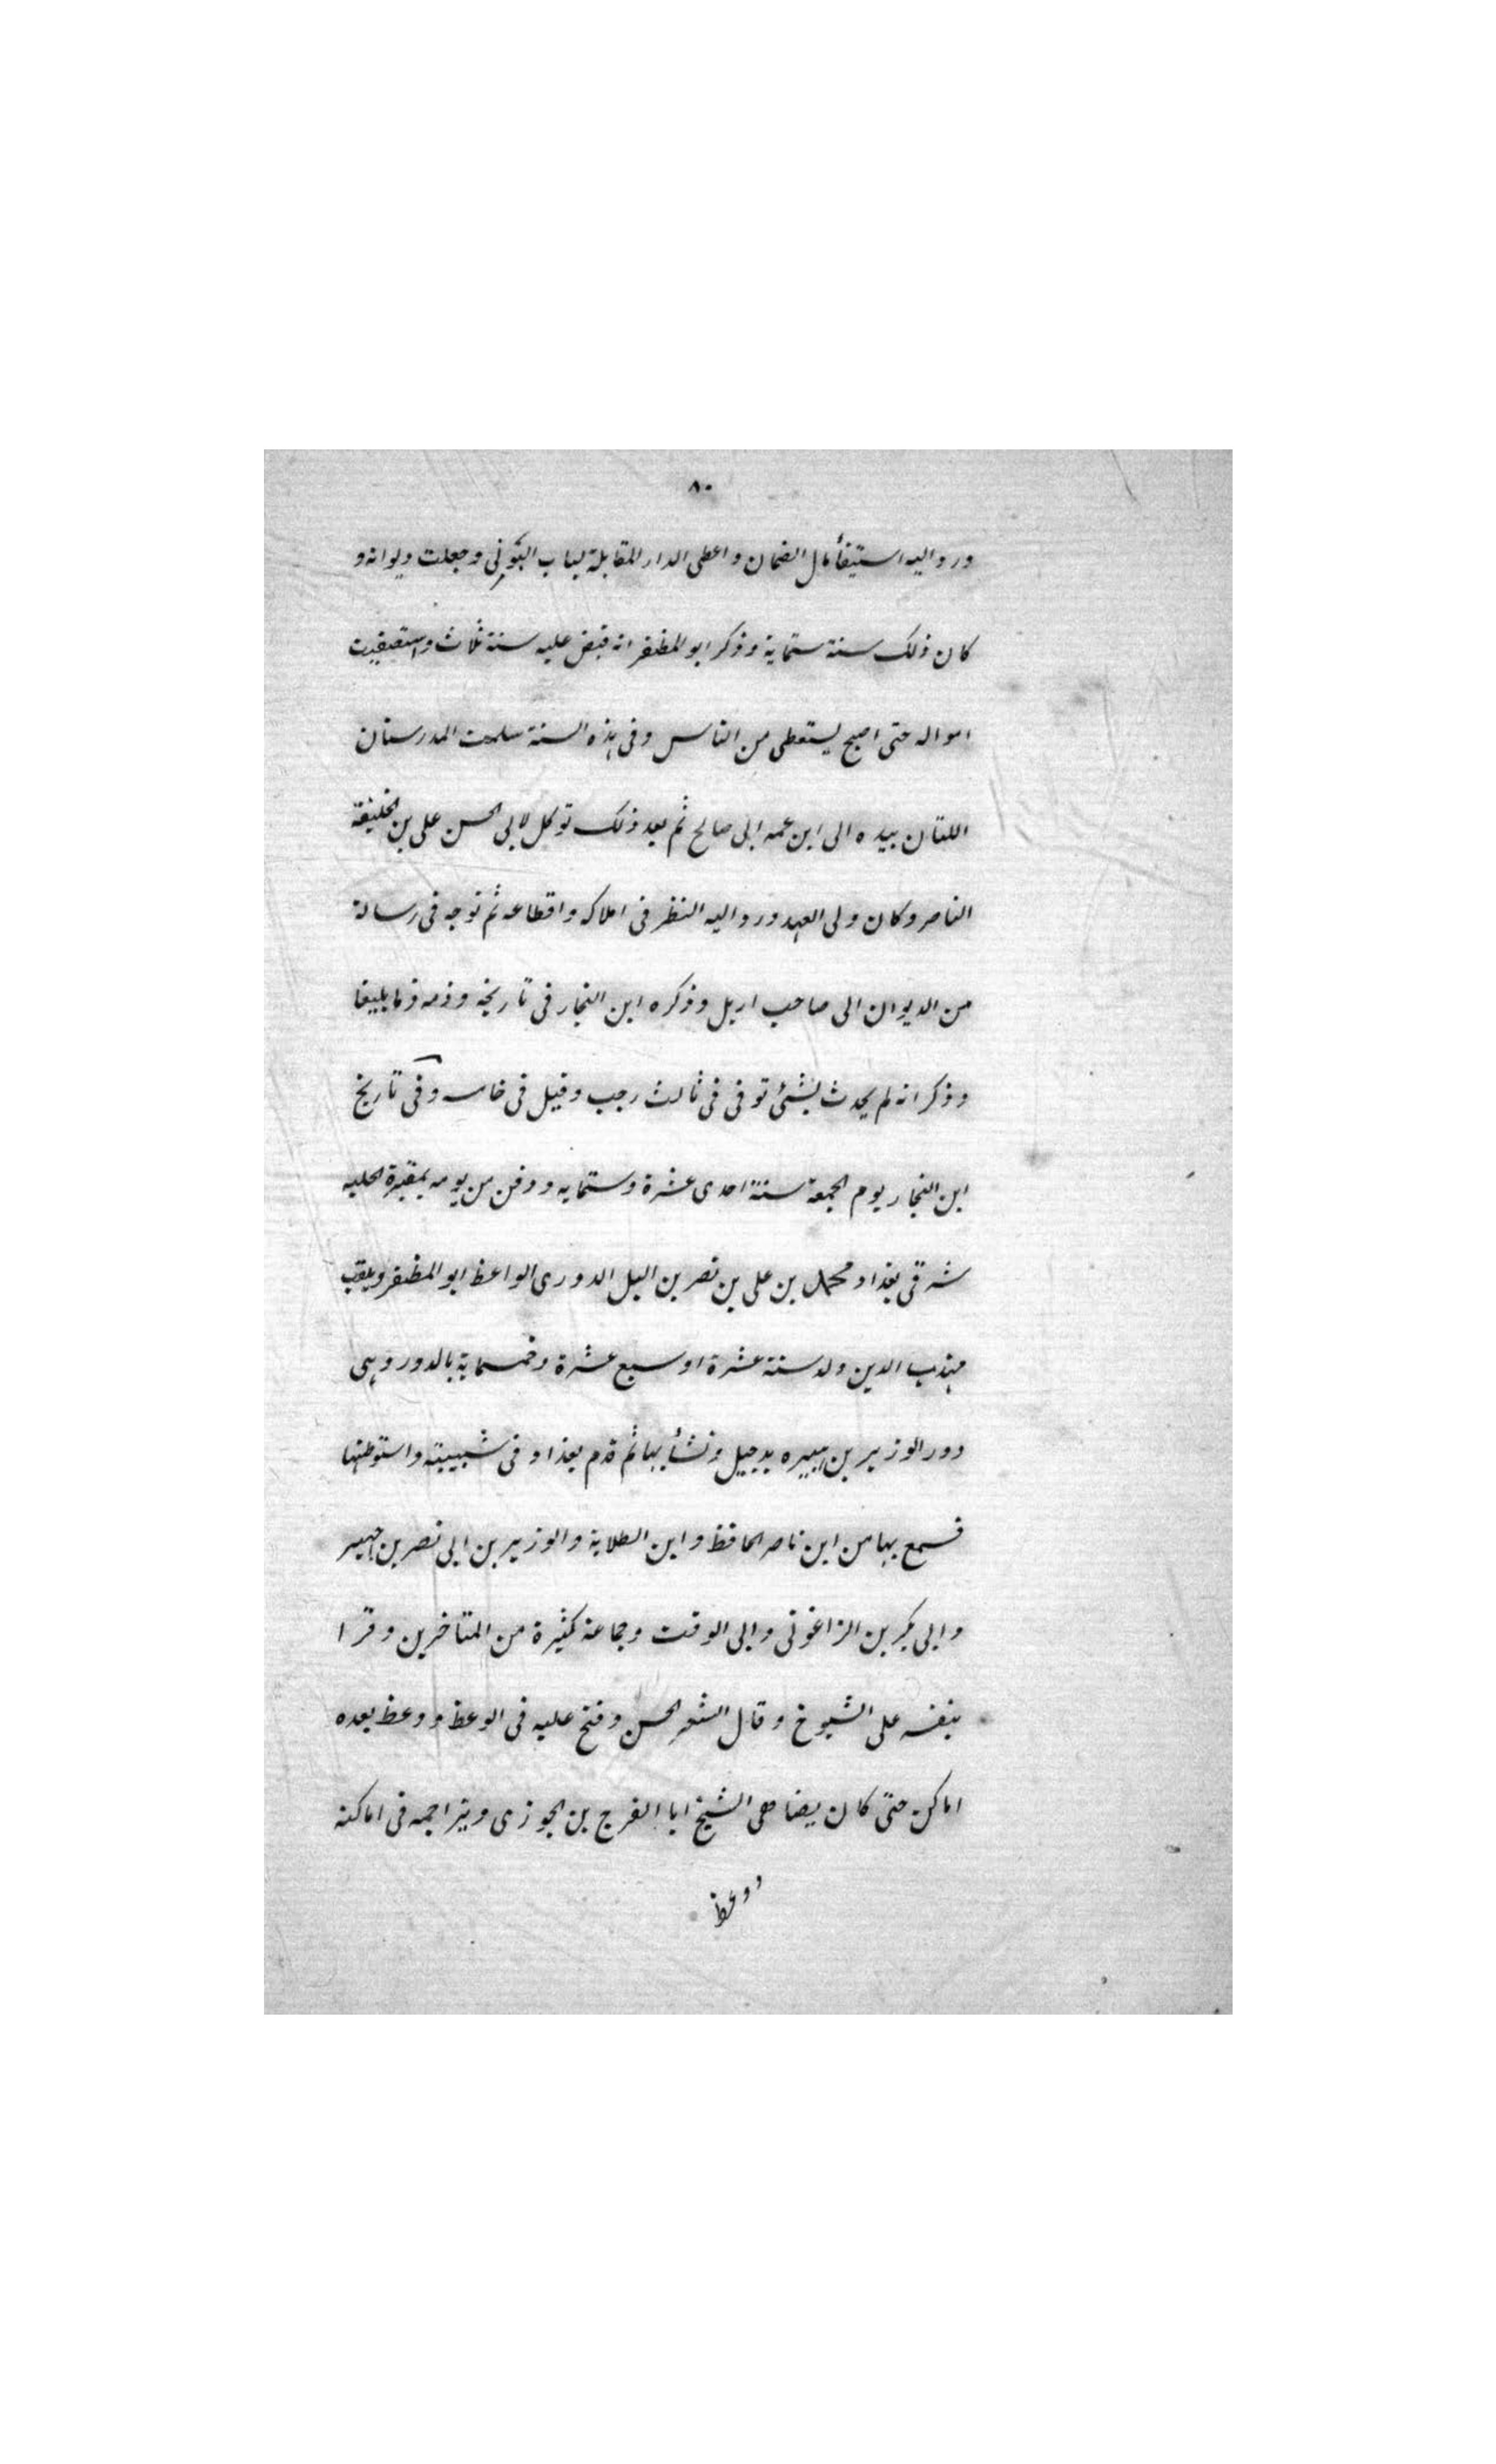 ٨٠
ورد واليه استيفأ مال الضمان واعطى الدار المقابلة لباب وجعلت ديوانه و
كان ذلك سنة ستماية وذكر ابو المظفر انه قبض عليه سنة ثلاث واستقيت
امواله حتى اصبح يستعطى من الناس وفى هذه السنة سلمت المدرستان
اللتان بيده الى ابن عمه ابى صالح ثم بعد ذلك توكل لابى الحسن على بن الخليفة
الناصر وكان ولى العهد ورد واليه النظر فى املاكه واقطاعه ثم توجه فى رسالة
من الديوان الى صاحب اربل وذكره ابن النجار فى تاريخه وذمه ذما بليغا
وذكر انه لم يحدث بشئ توفى فى ثالث رجب وقيل فى خامسه وفى تاريخ
ابن النجار يوم الجمعة سنة احدى عشرة وستمايه ودفن من يومه بمقبرة الحلبه
شرقى بغداد محمد بن على بن نصر بن البل الدورى الواعظ ابو المظفر ويلقب
مهذب الدين ولد سنة عشرة او سبع عشرة وخمسماية بالدور وهى
دور الوزير بن هبيره بدجيل ونشأ بها ثم قدم بغداد فى شبيبته واستوطنها
فسمع بها من ابن ناصر الحافظ وابن الطلاية والوزير بن ابى نصر بن جهير
وابى بكر بن الزاغونى وابى الوقت وجماعة كثيرة من المتاخرين وقرا
بنفسه على الشيوخ وقال الشعر الحسن وفتح عليه فى الوعظ ووعظ بعده
اماكن حتى كان يضاهى الشيخ ابا الفرج بن الجوزى ويزاحمه فى اماكنه
ووعظ